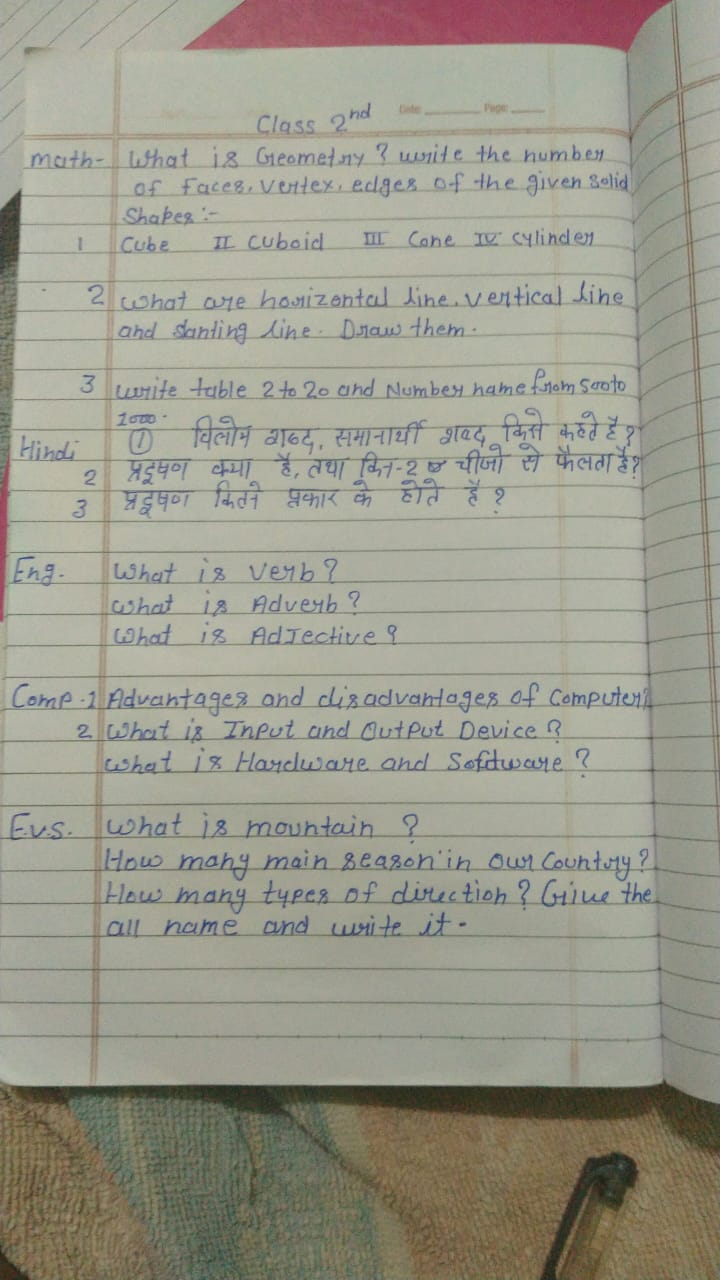 Date: Page:
Class 2nd
math- What is Geometry? write the number
of faces, vertex, edges of the given solid
Shapes :-
1 Cube II Cuboid III Cone IV Cylinder
2 What are horizontal line, vertical line
and slanting line. Draw them.
3 write table 2 to 20 and Number name from 500 to
1000.
Hindi ① विलोम शब्द, समानार्थी शब्द किसे कहते है?
2 प्रदूषण क्या है, तथा किन-2 चीजो से फैलता है?
3 प्रदूषण कितने प्रकार के होते है?
Eng. What is Verb?
What is Adverb?
What is AdJective?
Comp. 1 Advantages and disadvantages of Computer?
2 What is InPut and OutPut Device?
What is Hardware and Software?
E.v.s. What is mountain ?
How many main season in our Country?
How many types of direction? Give the
all name and write it.